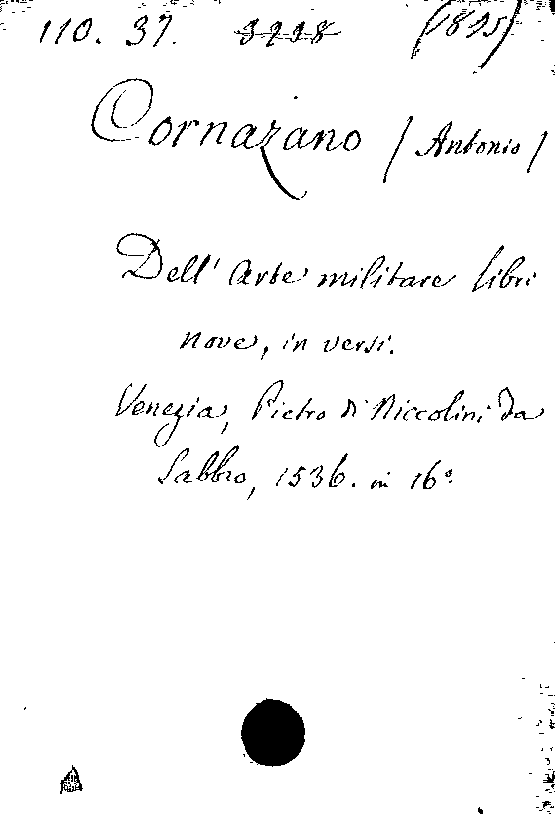 110. 37. 3238 (1895)
Cornazano (Antonio)
Dell' Arte militare libri
nove, in versi.
Venezia, Pietro di Niccolini da
Sabbro, 1536. in 16º.